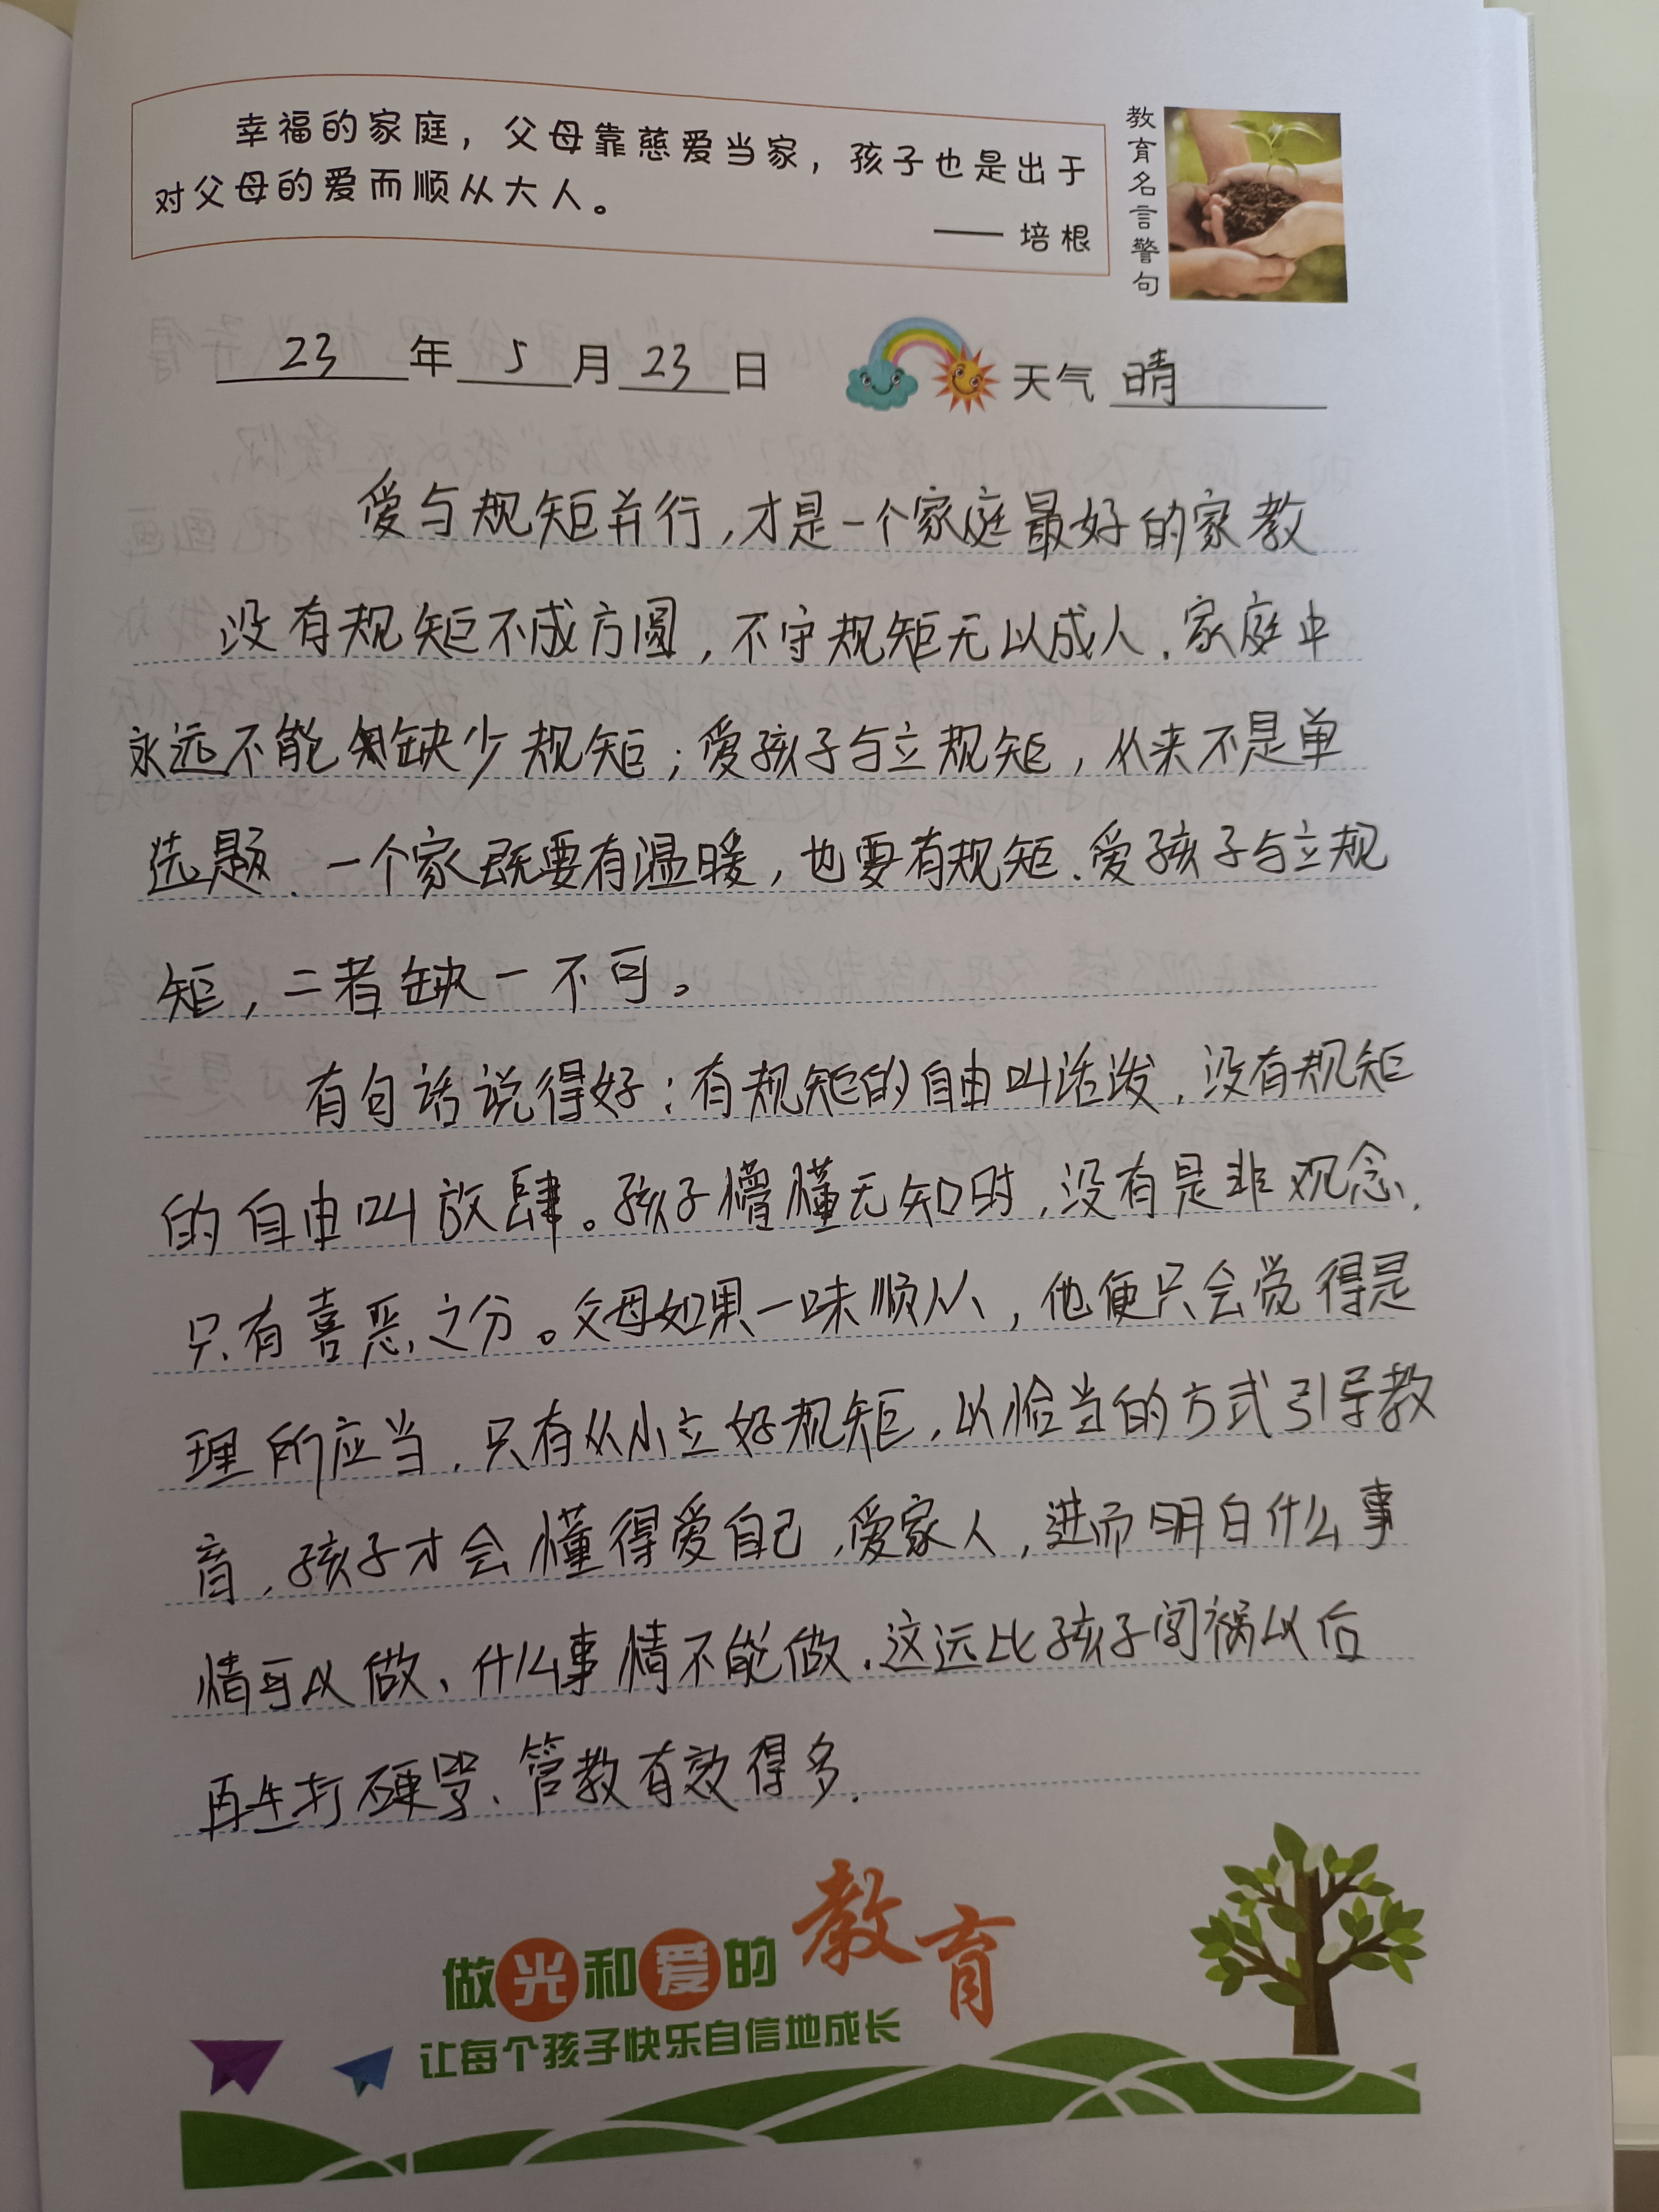 幸福的家庭，父母靠慈爱当家，孩子也是出于
对父母的爱而顺从大人。
—— 培根
教育名言警句
23年5月23日 天气 晴
爱与规矩并行，才是一个家庭最好的家教
没有规矩不成方圆，不守规矩无以成人．家庭中
永远不能缺少规矩；爱孩子与立规矩，从来不是单
选题．一个家既要有温暖，也要有规矩．爱孩子与立规
矩，二者缺一不可。
有句话说得好：有规矩的自由叫活泼，没有规矩
的自由叫放肆。孩子懵懂无知时，没有是非观念，
只有喜恶之分。父母如果一味顺从，他便只会觉得是
理所应当．只有从小立好规矩，以恰当的方式引导教
育，孩子才会懂得爱自己，爱家人，进而明白什么事
情可以做、什么事情不能做．这远比孩子闯祸以后
再生打硬骂、管教有效得多．
做光和爱的教育
让每个孩子快乐自信地成长